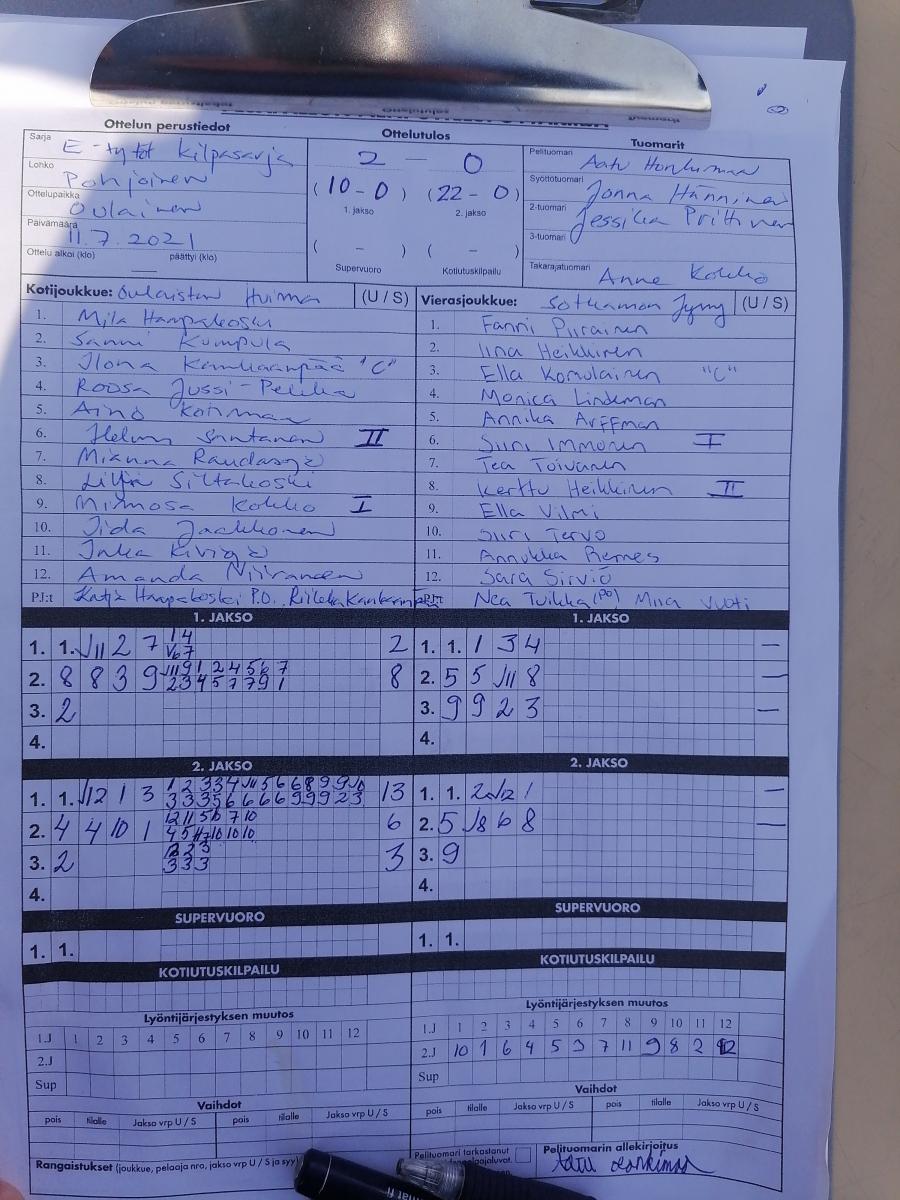 Ottelun perustiedot
Ottelutulos
Tuomarit
Sarja E-tytöt kilpasarja
Lohko Pohjoinen
Ottelupaikka Oulainen
Päivämäärä 11.7.2021
Ottelu alkoi (klo) — päättyi (klo)
2 — 0
(10-0) (22-0)
1. jakso 2. jakso
( - ) ( - )
Supervuoro Kotiutuskilpailu
Pelituomari Aatu Honkimaa
Syöttötuomari Jonna Hänninen
2-tuomari Jessika Prittinen
3-tuomari
Takarajatuomari Anne Kokko
Kotijoukkue: Oulaisten Huima (U / S)
1. Mila Haapakoski
2. Sanni Kumpula
3. Ilona Kankaanpää "C"
4. Roosa Jussi-Pekka
5. Aino
6. Helmi Santanen II
7. Minna Raudasoja
8. Lilja Siltakoski
9. Mimosa Kokko I
10. Iida Jaakkonen
11. Inka Kivioja
12. Amanda Niiranen
PJ:t Katja Haapakoski P.O., Riikka Kankaanpää
Vierasjoukkue: Sotkamon Jymy (U / S)
1. Fanni Piirainen
2. Iina Heikkinen
3. Ella Komulainen "C"
4. Monica Lindeman
5. Annika Arffman
6. Siiri Immonen I
7. Tea Toivanen
8. Kerttu Heikkinen II
9. Ella Vilmi
10. Siiri Tervo
11. Annukka Piernes
12. Sara Sirviö
PJ:t Nea Tuikka (PO) Miia Vuoti
1. JAKSO
1. 1. √11 2 7 14 2
2. 8 8 3 9 8
3. 2
4.
1. JAKSO
1. 1. 1 3 4 —
2. 5 5 √11 8 —
3. 9 9 2 3 —
4.
2. JAKSO
1. 1. √12 1 3 13
3 3 3 5 6 6 6 6 9 9 9 2 3
2. 4 4 10 1 12 11 5 6 7 10 6
3. 2 3
3 3 3
4.
2. JAKSO
1. 1. 2 √12 1 —
2. 5 √8 6 8 —
3. 9
4.
SUPERVUORO
1. 1.
SUPERVUORO
1. 1.
KOTIUTUSKILPAILU
KOTIUTUSKILPAILU
Lyöntijärjestyksen muutos
1.J 1 2 3 4 5 6 7 8 9 10 11 12
2.J
Sup
Lyöntijärjestyksen muutos
1.J 1 2 3 4 5 6 7 8 9 10 11 12
2.J 10 1 6 4 5 3 7 11 9 8 2 12
Sup
Vaihdot
pois tilalle Jakso vrp U / S pois tilalle Jakso vrp U / S
Vaihdot
pois tilalle Jakso vrp U / S pois tilalle Jakso vrp U / S
Rangaistukset (joukkue, pelaaja nro, jakso vrp U / S ja syy)
Pelituomari tarkastanut
Pelituomarin allekirjoitus
Aatu Honkimaa